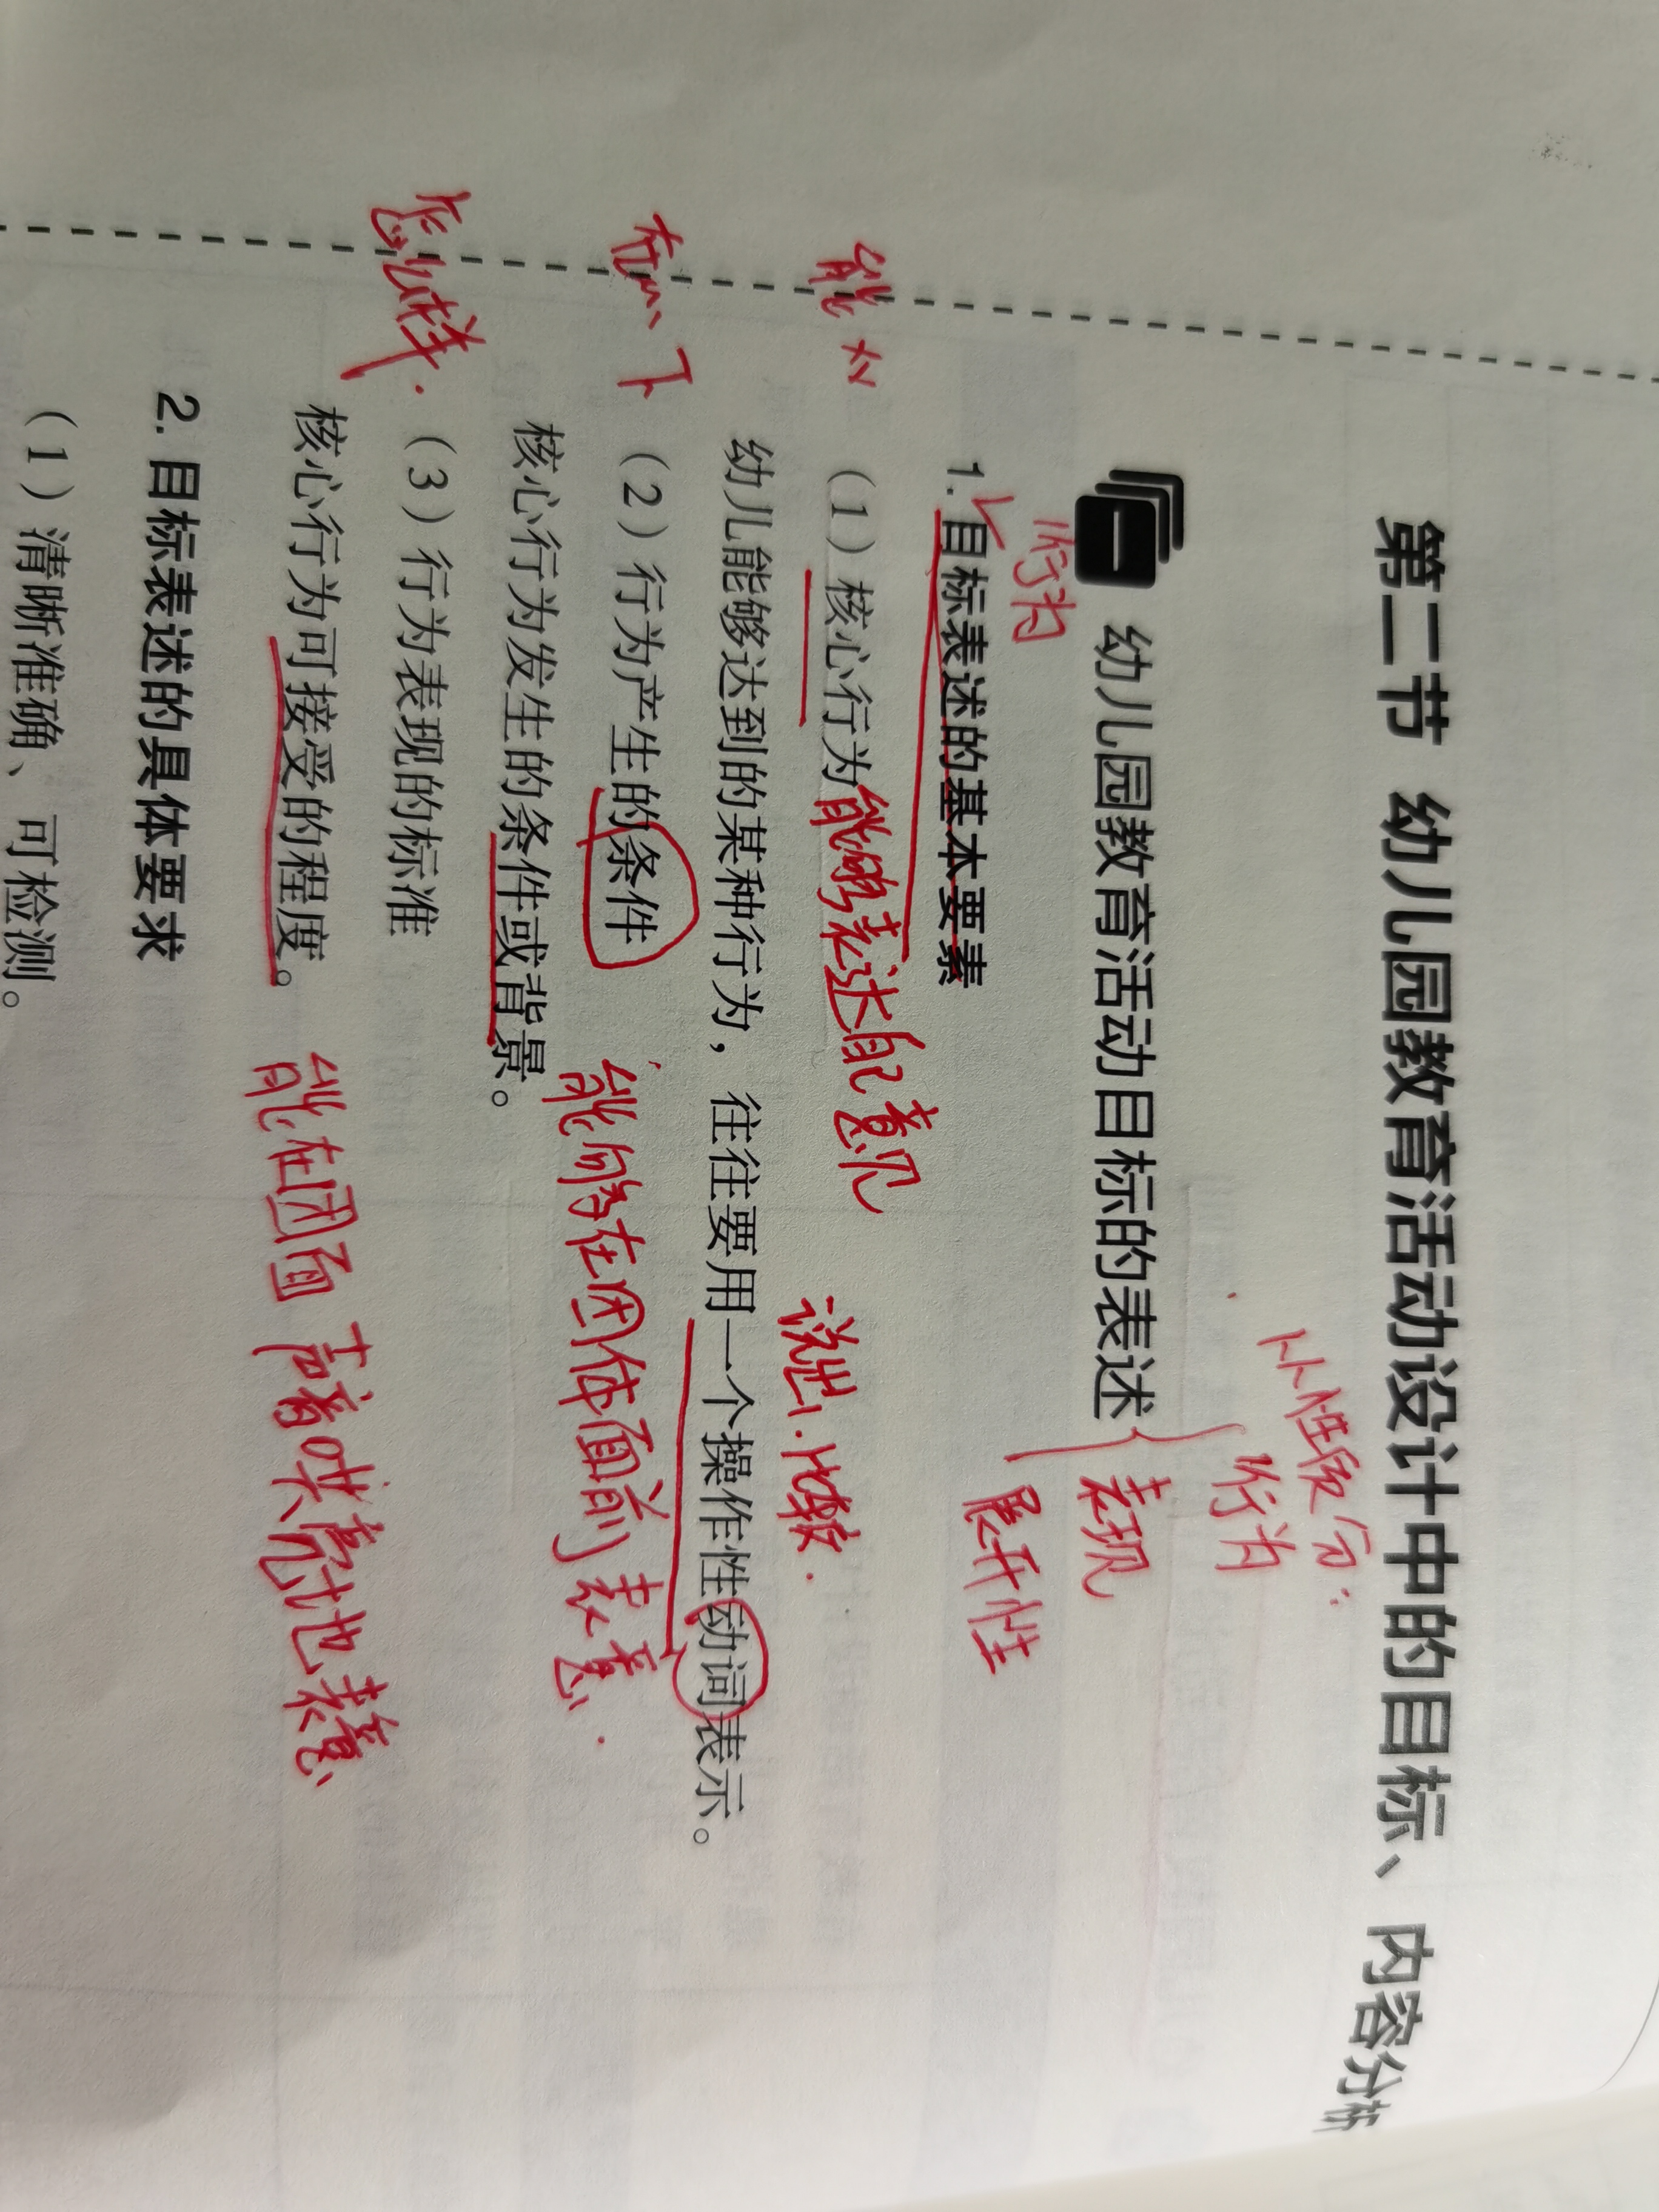 第二节 幼儿园教育活动设计中的目标、内容分析
从性质分:
行为
一 幼儿园教育活动目标的表述
表现
行为
展开性
1. 目标表述的基本要素
(1)核心行为 能够表达自己意见
能
说出、比较.
幼儿能够达到的某种行为,往往要用一个操作性动词表示。
在 下
(2)行为产生的条件 能够在团体面前表意.
核心行为发生的条件或背景。
怎么样.
(3)行为表现的标准
核心行为可接受的程度。 能在团面 声音洪亮地表意
2. 目标表述的具体要求
(1)清晰准确、可检测。